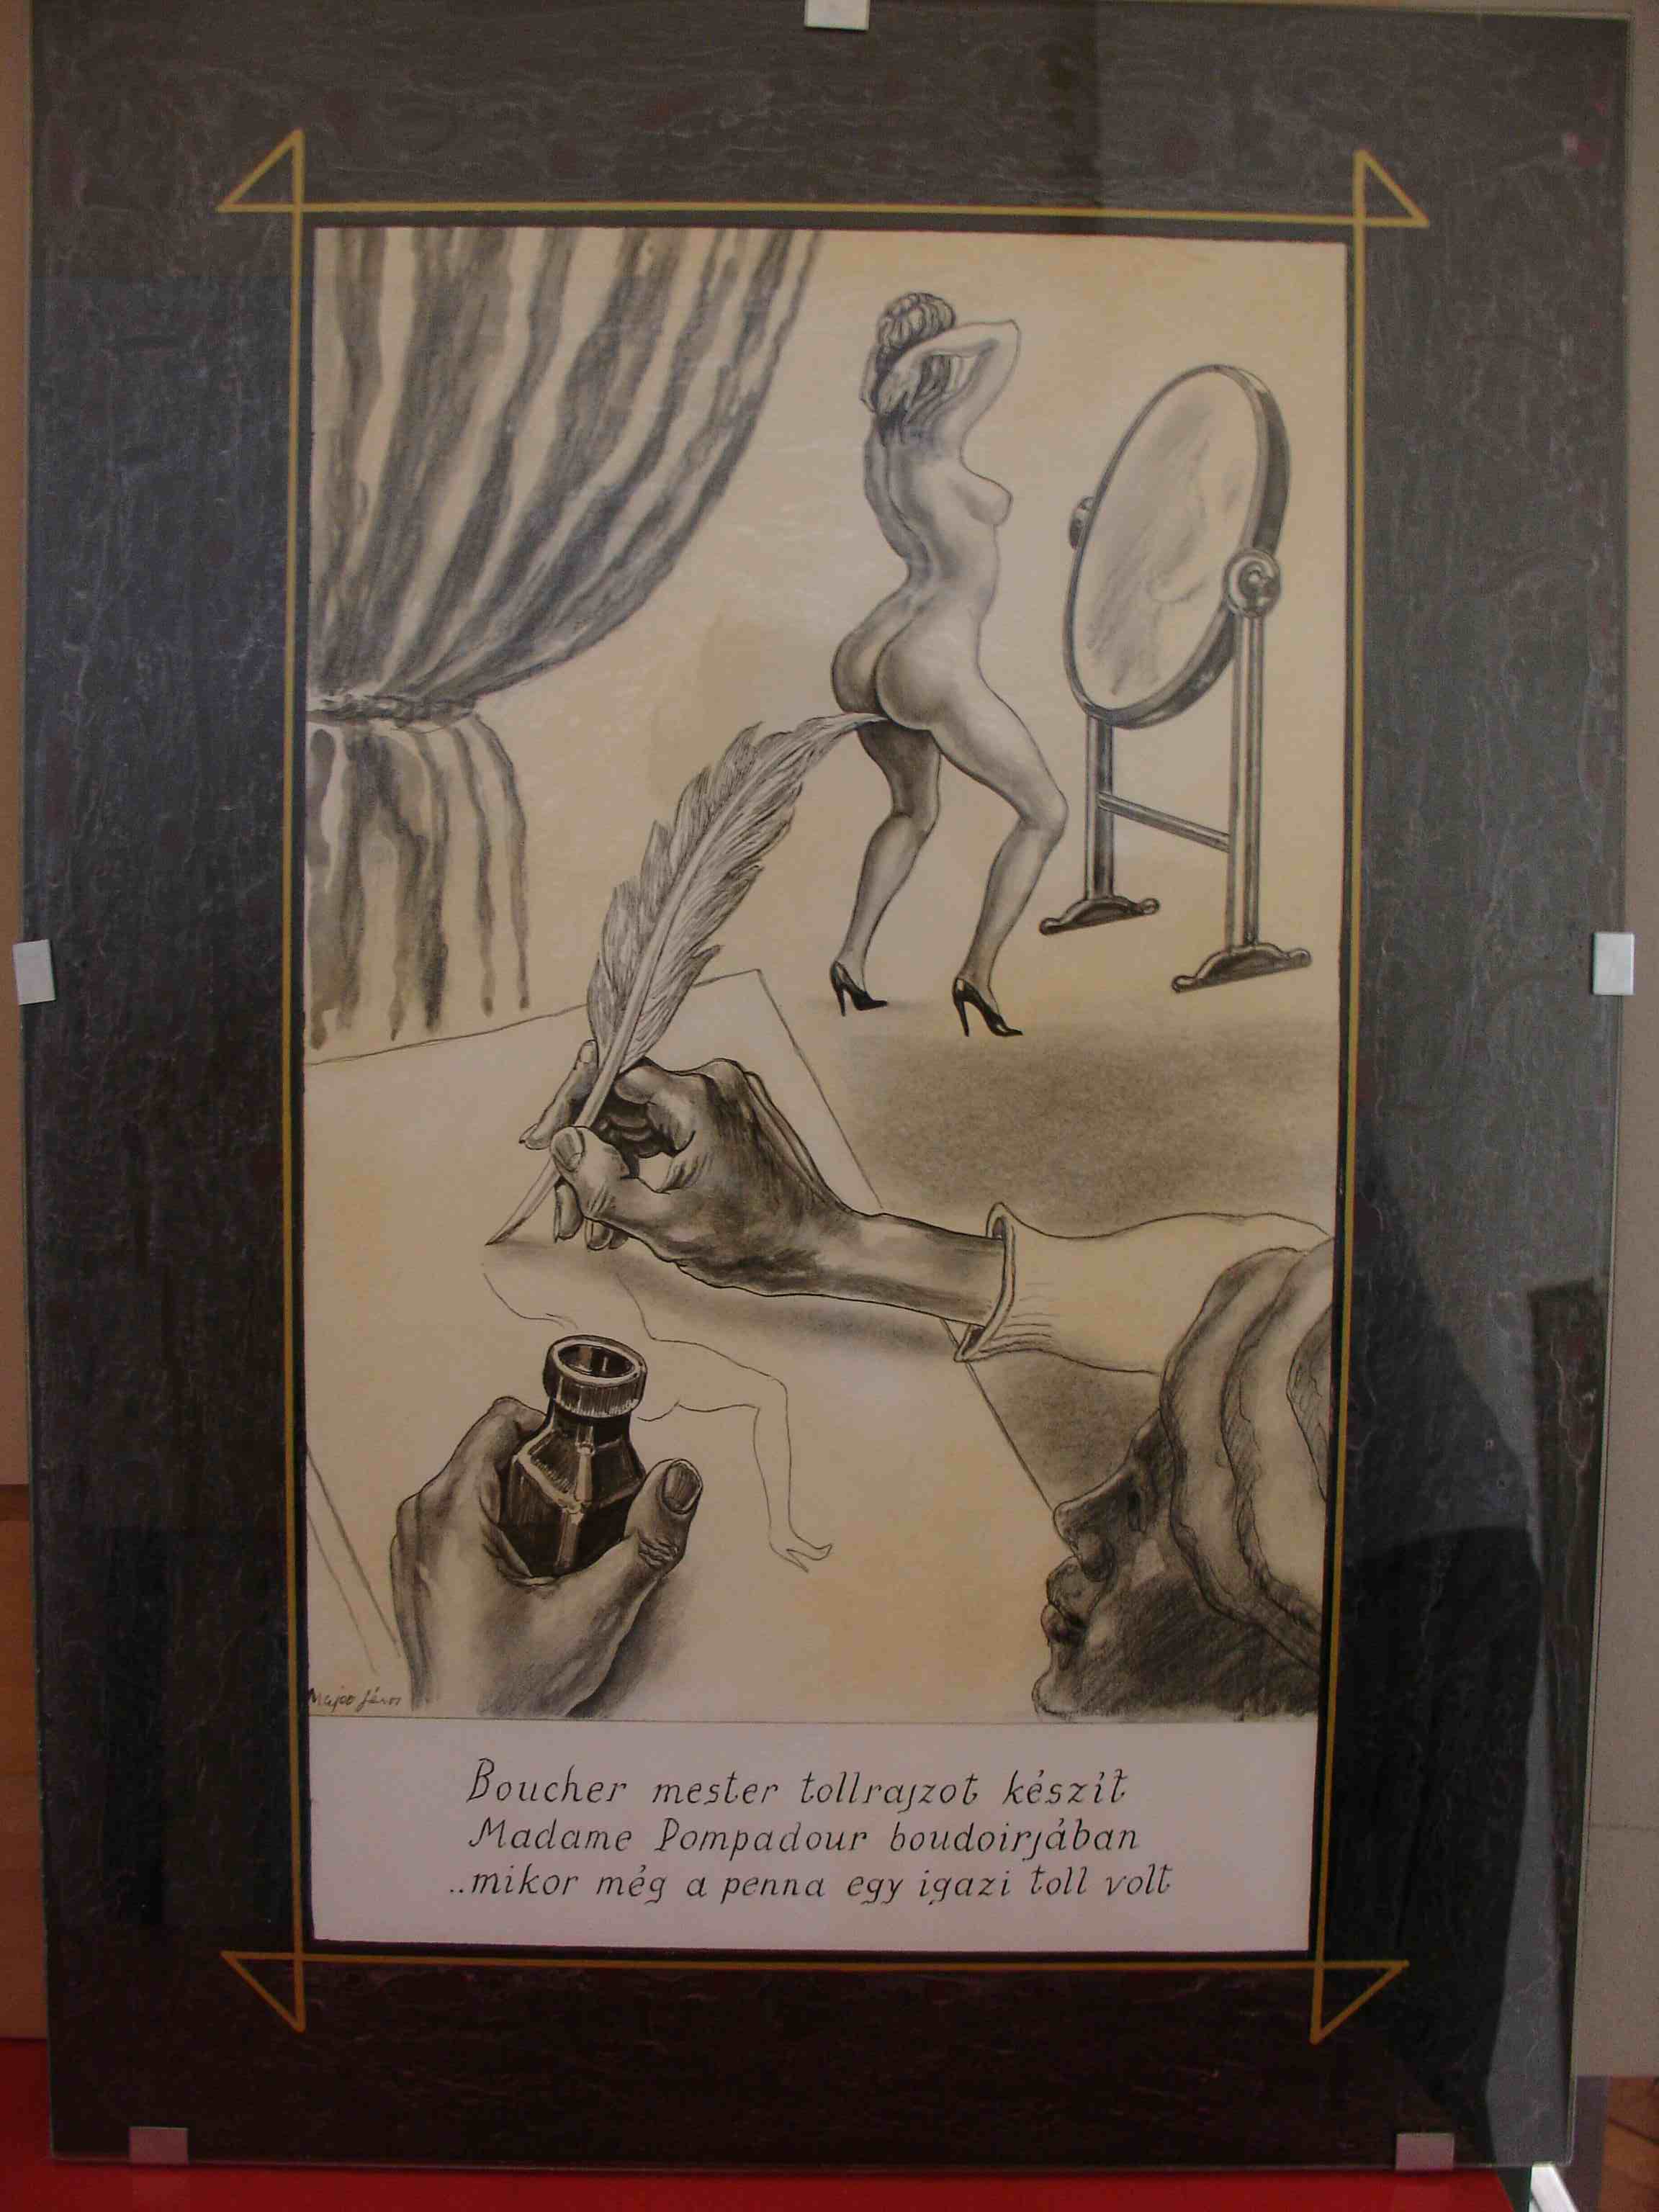 Majoo János
Boucher mester tollrajzot készít
Madame Pompadour boudoirjában
..mikor még a penna egy igazi toll volt